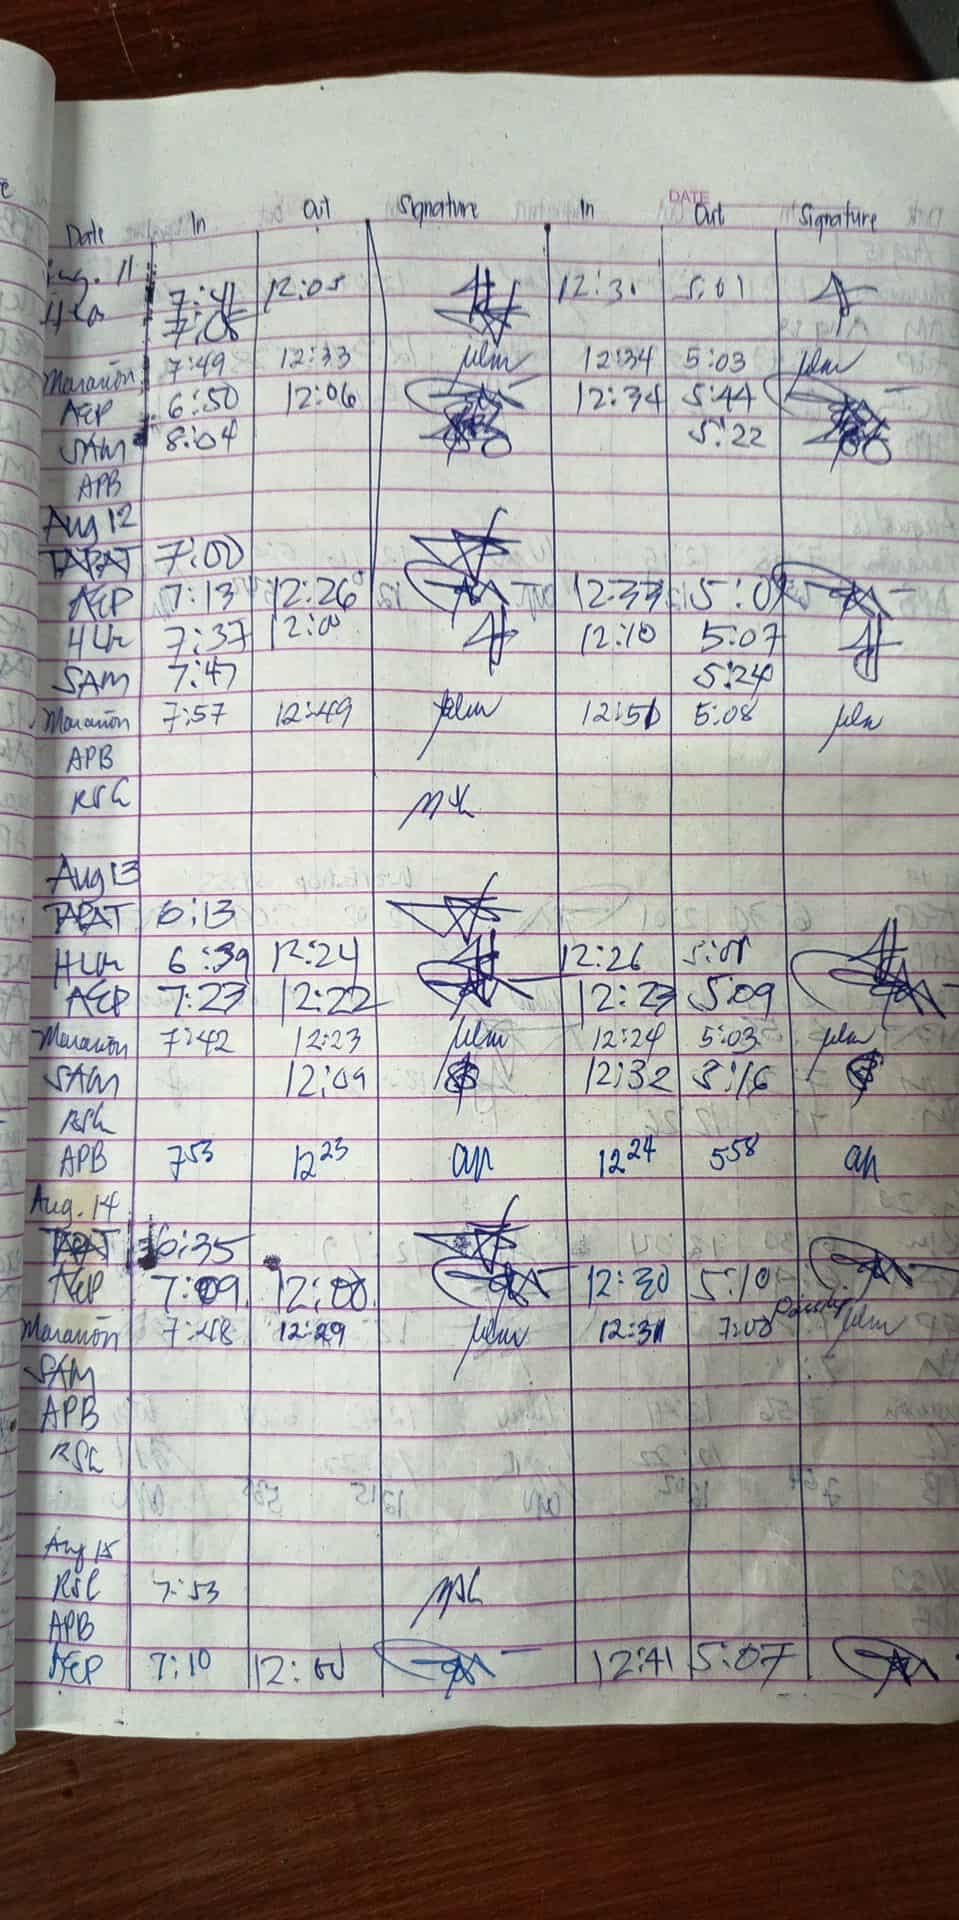 DATE
Date In Out Signature In Out Signature
Aug. 11
7:41 12:05 12:31 5:01
7:08
Marañon 7:49 12:33 12:34 5:03
AEP 6:50 12:06 12:34 5:44
SAM 8:04 5:22
APB
Aug 12
TAPAT 7:00
AEP 7:13 12:26 12:37
HLr 7:37 12:10 5:07
SAM 7:47 5:24
Marañon 7:57 12:49 12:51 5:08
APB
RSL
Aug 13
TAPAT 6:13
HLr 6:39 12:24 12:26 5:01
AEP 7:23 12:22 12:23 5:09
Marañon 7:42 12:23 12:24 5:03
SAM 12:09 12:32
RSL
APB 7 53 12 23 12 24 5 58
Aug. 14
TAPAT 6:35
AEP 7:09 12:00 12:30 5:10
Marañon 7:48 12:29 12:31 7:00
SAM
APB
RSL
Aug 15
RSL 7:53
APB
AEP 7:10 12:41 5:07